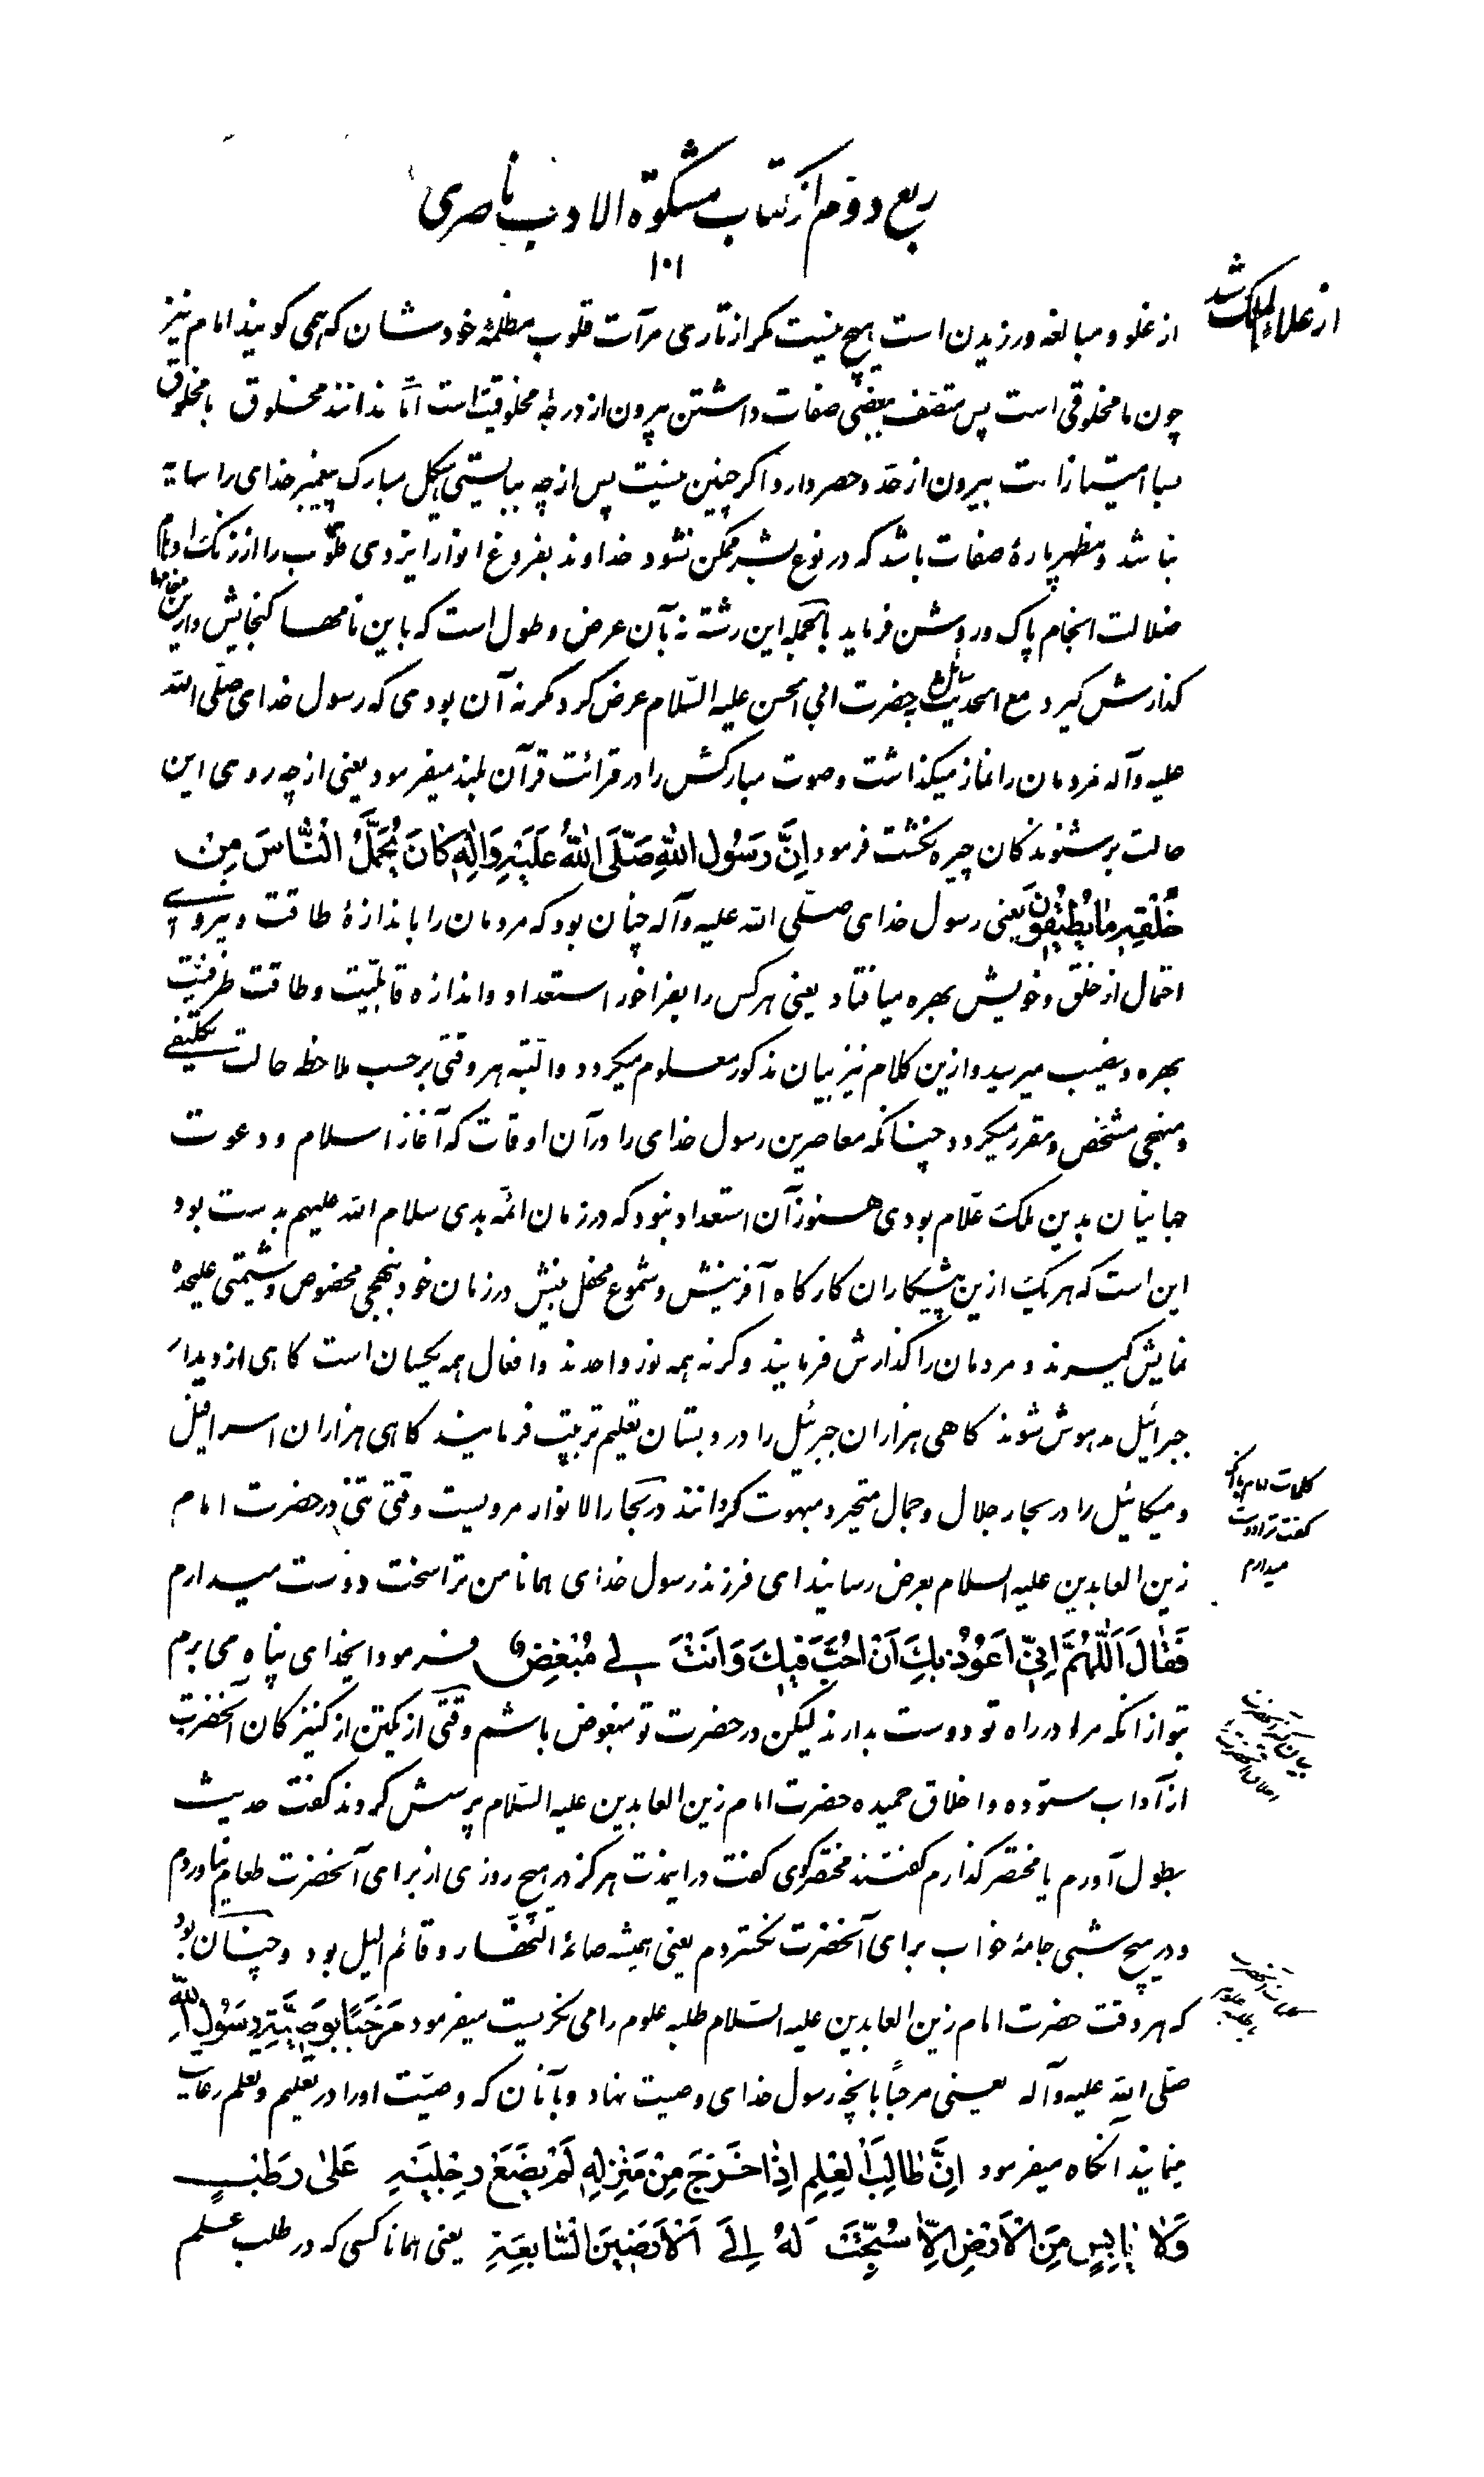 ربع دوم از کتاب مشکوة الادب ناصری
۱۰۱
از علاء الملک شد
از غلو و مبالغه ورزیدن است هیچ نیست مکر از تاری مرآت قلوب مظلمهٔ خودشان که همی کویند امام نیز
چون ما مخلوقی است پس متصف ببعضی صفات داشتن بیرون از درجهٔ مخلوقیت است امّا ندانند مخلوق با مخلوق
بسا امتیازات بیرون از حدّ و حصر دارد اکر چنین نیست پس از چه ببایستی هیکل مبارک پیغمبر خدای را سایه
نباشد و مظهر پارهٔ صفات باشد که در نوع بشر ممکن نشود خداوند بفروغ انوار ایزدی قلوب را از زنک اوهام
ضلالت انجام پاک و روشن فرماید بالجمله این رشته نه بآن عرض و طول است که باین نامها کنجایش و ازین مقامها
کذارش کیرد مع الحدیث سائل بحضرت ابی الحسن علیه السّلام عرض کرد مکر نه آن بودی که رسول خدای صلّی الله
علیه و آله مردمان را نماز میکذاشت و صوت مبارکش را در قرائت قرآن بلند میفرمود یعنی از چه روی این
حالت بر شنوندکان چیره نکشت فرمود اِنَّ رَسُولَ اللهِ صَلَّی اللهُ عَلَیْهِ وَاٰلِهِ کٰانَ یُحَمِّلُ النّٰاسَ مِنْ
خَلْقِهِ مٰا یُطیقُونَ یعنی رسول خدای صلّی الله علیه و آله چنان بود که مردمان را باندازهٔ طاقت و نیروی
احتمال از خلق و خویش بهره میافتاد یعنی هر کس را بفراخور استعداد و اندازه قابلیّت و طاقت ظرفیّت
بهره و نصیب میرسید و ازین کلام نیز بیان مذکور معلوم میکردد و البتّه هر وقتی بر حسب ملاحظه حالت تکلیفی
و منهجی مشخّص و مقرر میکردد چنانکه معاصرین رسول خدای را در آن اوقات که آغاز اسلام و دعوت
جهانیان بدین ملک علّام بودی هنوز آن استعداد نبود که در زمان ائمّه هدی سلام الله علیهم بدست بود
این است که هر یک ازین پیشکاران کارکاه آفرینش و شموع محفل بینش در زمان خود بنهجی مخصوص و شیمتی علیحده
نمایش کیرند و مردمان را کذارش فرمایند و کرنه همه نور واحدند و افعال همه یکسان است کاهی از دیدار
جبرائیل مدهوش شوند کاهی هزاران جبرئیل را در دبستان تعلیم تربیت فرمایند کاهی هزاران اسرافیل
و میکائیل را در بحار جلال و جمال متحیر و مبهوت کردانند در بحار الانوار مرویست وقتی تنی در حضرت امام
زین العابدین علیه السلام بعرض رسانید ای فرزند رسول خدای همانا من ترا سخت دوست میدارم
کلمات امام با آنکه
کفت ترا دوست
میدارم
فَقٰالَ اَللّٰهُمَّ اِنّی اَعُوذُ بِکَ اَنْ اُحَبَّ فیکَ وَ اَنْتَ لی مُبْغِضٌ فرمود ایخدای پناه می برم
بتو از انکه مرا در راه تو دوست بدارند لیکن در حضرت تو مبغوض باشم وقتی از یکتن از کنیزکان آنحضرت
از آداب ستوده و اخلاق حمیده حضرت امام زین العابدین علیه السّلام پرسش کردند کفت حدیث
بطول آورم یا مختصر کذارم کفتند مختصر کوی کفت در اینمدت هرکز در هیچ روزی از برای آنحضرت طعام نیاوردم
و در هیچ شبی جامهٔ خواب برای آنحضرت نکستردم یعنی همیشه صائم النّهار و قائم اللیل بود و چنان بود
که هر وقت حضرت امام زین العابدین علیه السّلام طلبه علوم را می نکریست میفرمود مَرْحَبًا بِوَصِیَّةِ رَسُولِ اللهِ
صلّی الله علیه و آله یعنی مرحباً بانچه رسول خدای وصیت نهاد و بآنان که وصیّت او را در تعلیم و تعلم رعایت
مینمایند آنکاه میفرمود اِنَّ طٰالِبَ الْعِلْمِ اِذٰا خَرَجَ مِنْ مَنْزِلِهِ لَمْ یَضَعْ رِجْلَیْهِ عَلیٰ رَطْبٍ
وَلاٰ یٰابِسٍ مِنَ الْاَرْضِ اِلّاٰ سُبِّحَتْ لَهُ اِلَی الْاَرَضینَ السّٰابِعَةِ یعنی همانا کسی که در طلب علم